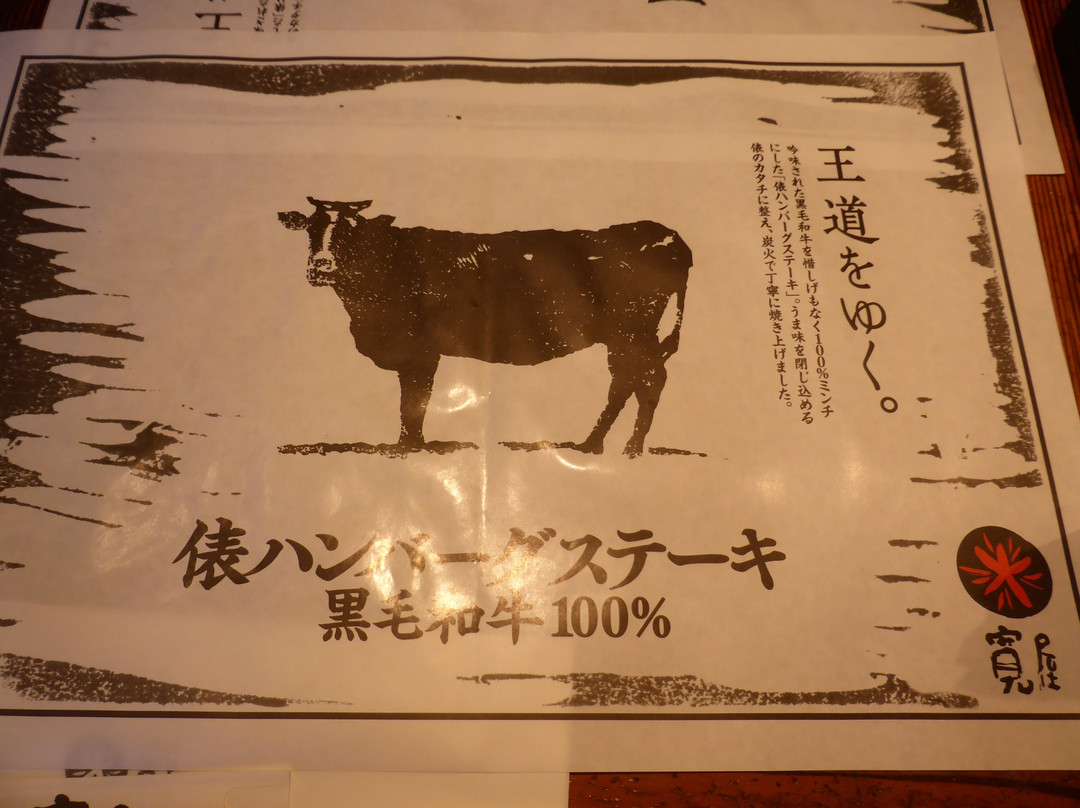 王道をゆく。
吟味された黒毛和牛を惜しげもなく100%ミンチ
にした「俵ハンバーグステーキ」。うま味を閉じ込める
俵のカタチに整え、炭火で丁寧に焼き上げました。
俵ハンバーグステーキ
黒毛和牛100%
寛屋